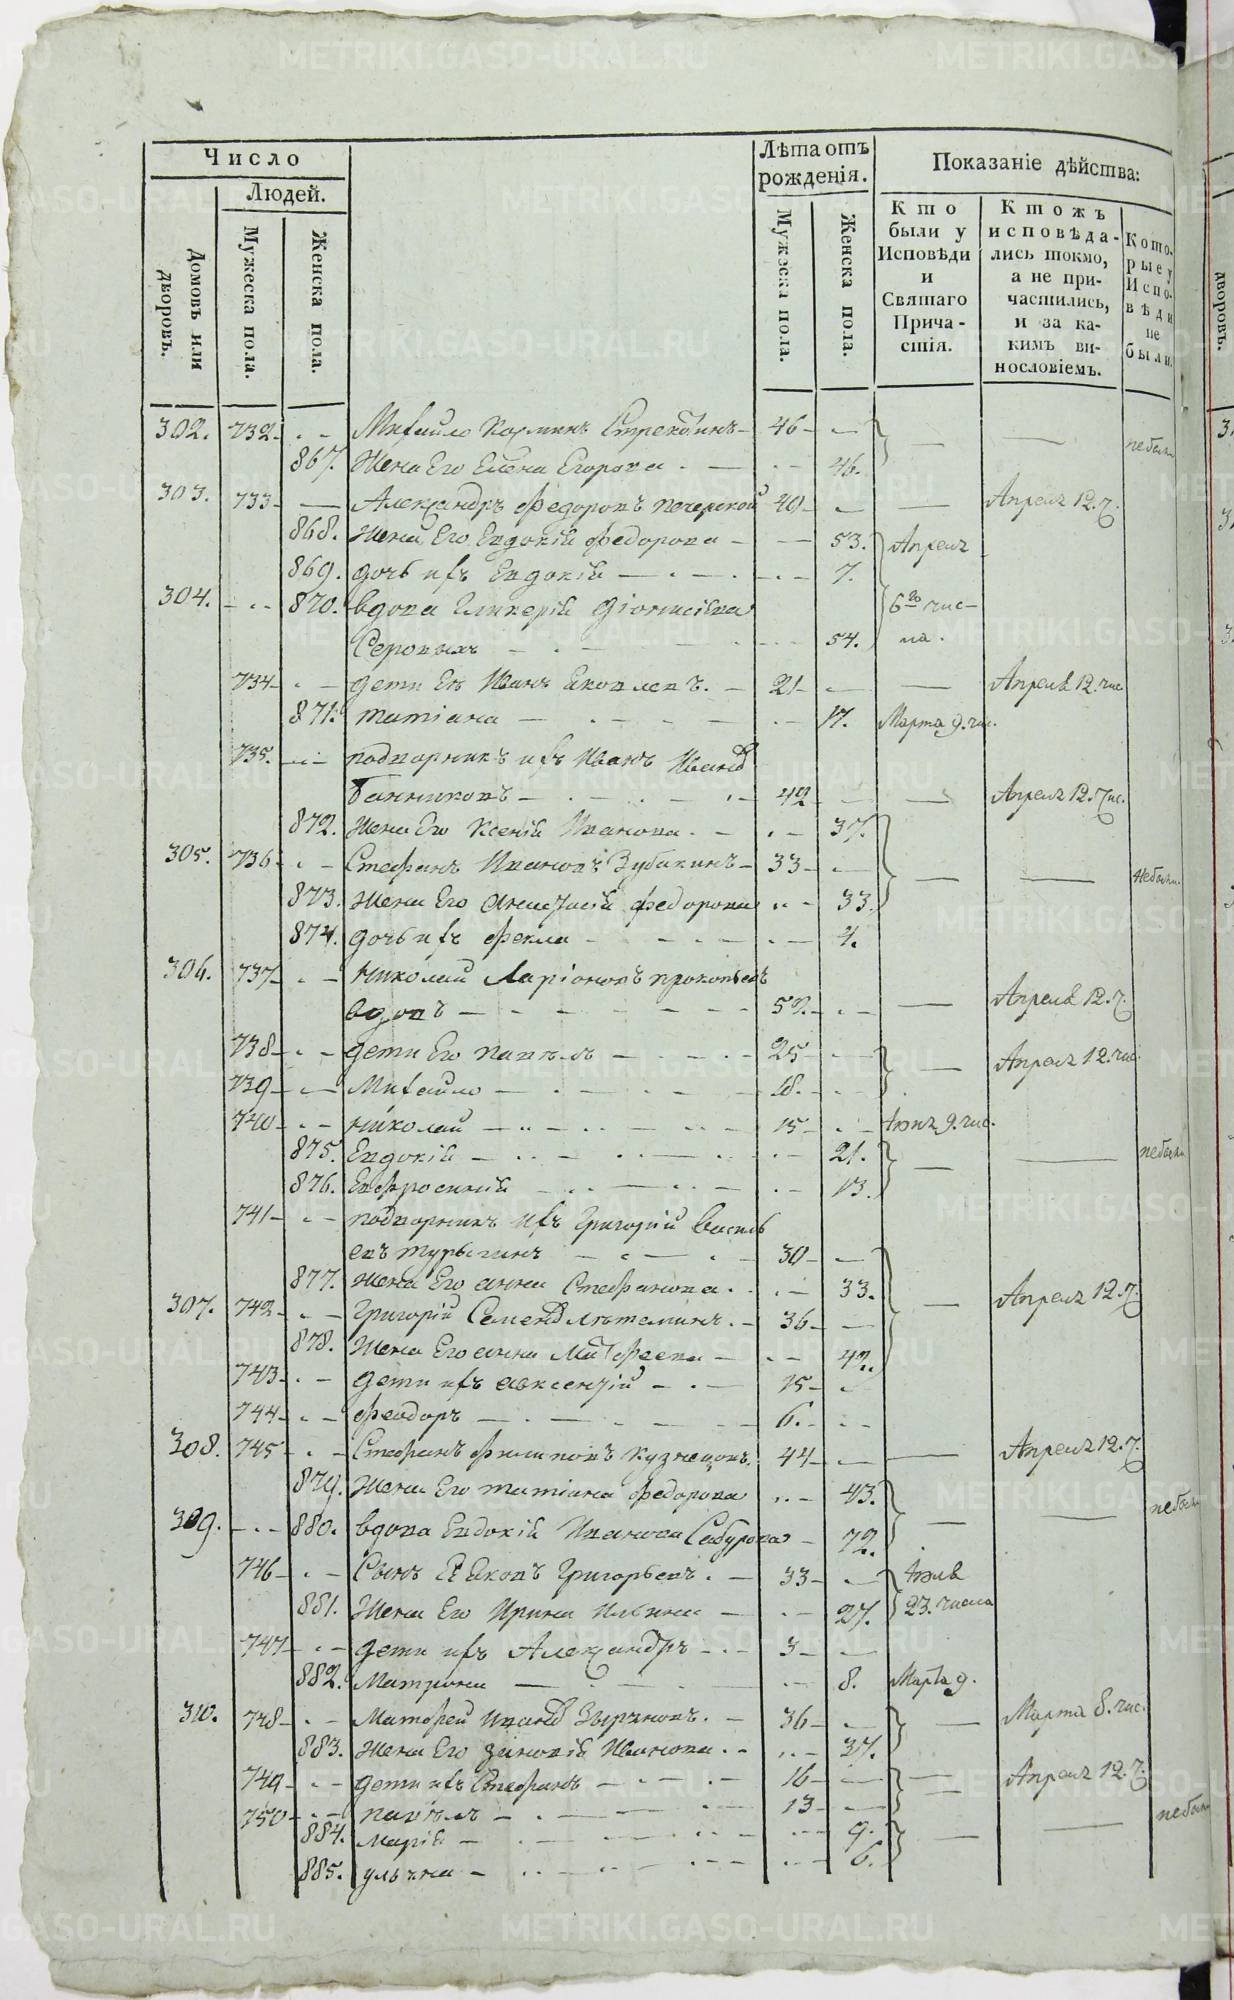 Число
Людей.
Домовъ или дворовъ.
Мужеска пола.
Женска пола.
Лѣта отъ рожденія.
Мужеска пола.
Женска пола.
Показаніе дѣйства:
Кто были у Исповѣди и Святаго Причастія.
Ктожъ исповѣдались токмо, а не причастились, и за какимъ винословіемъ.
Которые у Исповѣди не были.
302. 732 Михайло Козминъ 46 не были
867. Жена Его Елена Егорова 46.
303. 733 Александръ Федоровъ Печерской 40 Апреля 12. ч.
868. Жена Его Евдокій Федорова 53. Апреля
869. дочь ихъ Евдокій 7.
304. 870. вдова Гликерій Діонисіева 6го чис-
Серовыхъ 54. ла.
734 дети Ея Иванъ Яковлевъ. 21 Апреля 12. чис
871. татіана 17. Марта 9. чис.
735. подворникъ ихъ Иванъ Иванов
Банниковъ 42 Апреля 12. чис.
872. Жена Его Ксеній Иванова. 37.
305. 736 Стефанъ Ивановъ Зубакинъ 33 не были.
873. Жена Его Анастасій федорова 33.
874. дочь ихъ Фекла 4.
306. 737 Николай Ларіоновъ прокопьевъ
вдовъ 52. Апреля 12. ч.
738 дети Его павелъ 25 Апреля 12. чис.
739 Михайло 18.
740 Николай 15 9. чис.
875. Евдокій 21. не были
876. Евфросиній 13.
741 подворникъ ихъ Григорій Василь
евъ турыгинъ 30
877. Жена Его анна Стефанова. 33. Апреля 12. ч.
307. 742 Григорій Семенов 36
878. Жена Его анна Матфеева 42.
743 дети ихъ авксентій 15
744 феодоръ 6.
308. 745 Стефанъ Филиповъ Кузнецовъ. 44 Апреля 12. ч.
879. Жена Его татіана федорова 43. не были
309. 880. вдова Евдокій Иванова Сабурова 72.
746 Сынъ Ея Яковъ Григорьевъ. 33
881. Жена Его Ирина Ильина 27. 23. числа
747 дети ихъ Александръ 3
882. Матрона 8. Марта 9.
310. 748 Матфей Иванов Зыряновъ. 36 Марта 8. чис.
883. Жена Его Зиновій Иванова. 37.
749 дети ихъ Стефанъ 16 Апреля 12. ч.
750 павелъ 13 не были
884. Марій 9.
885. ульяна 6.
METRIKI.GASO-URAL.RU